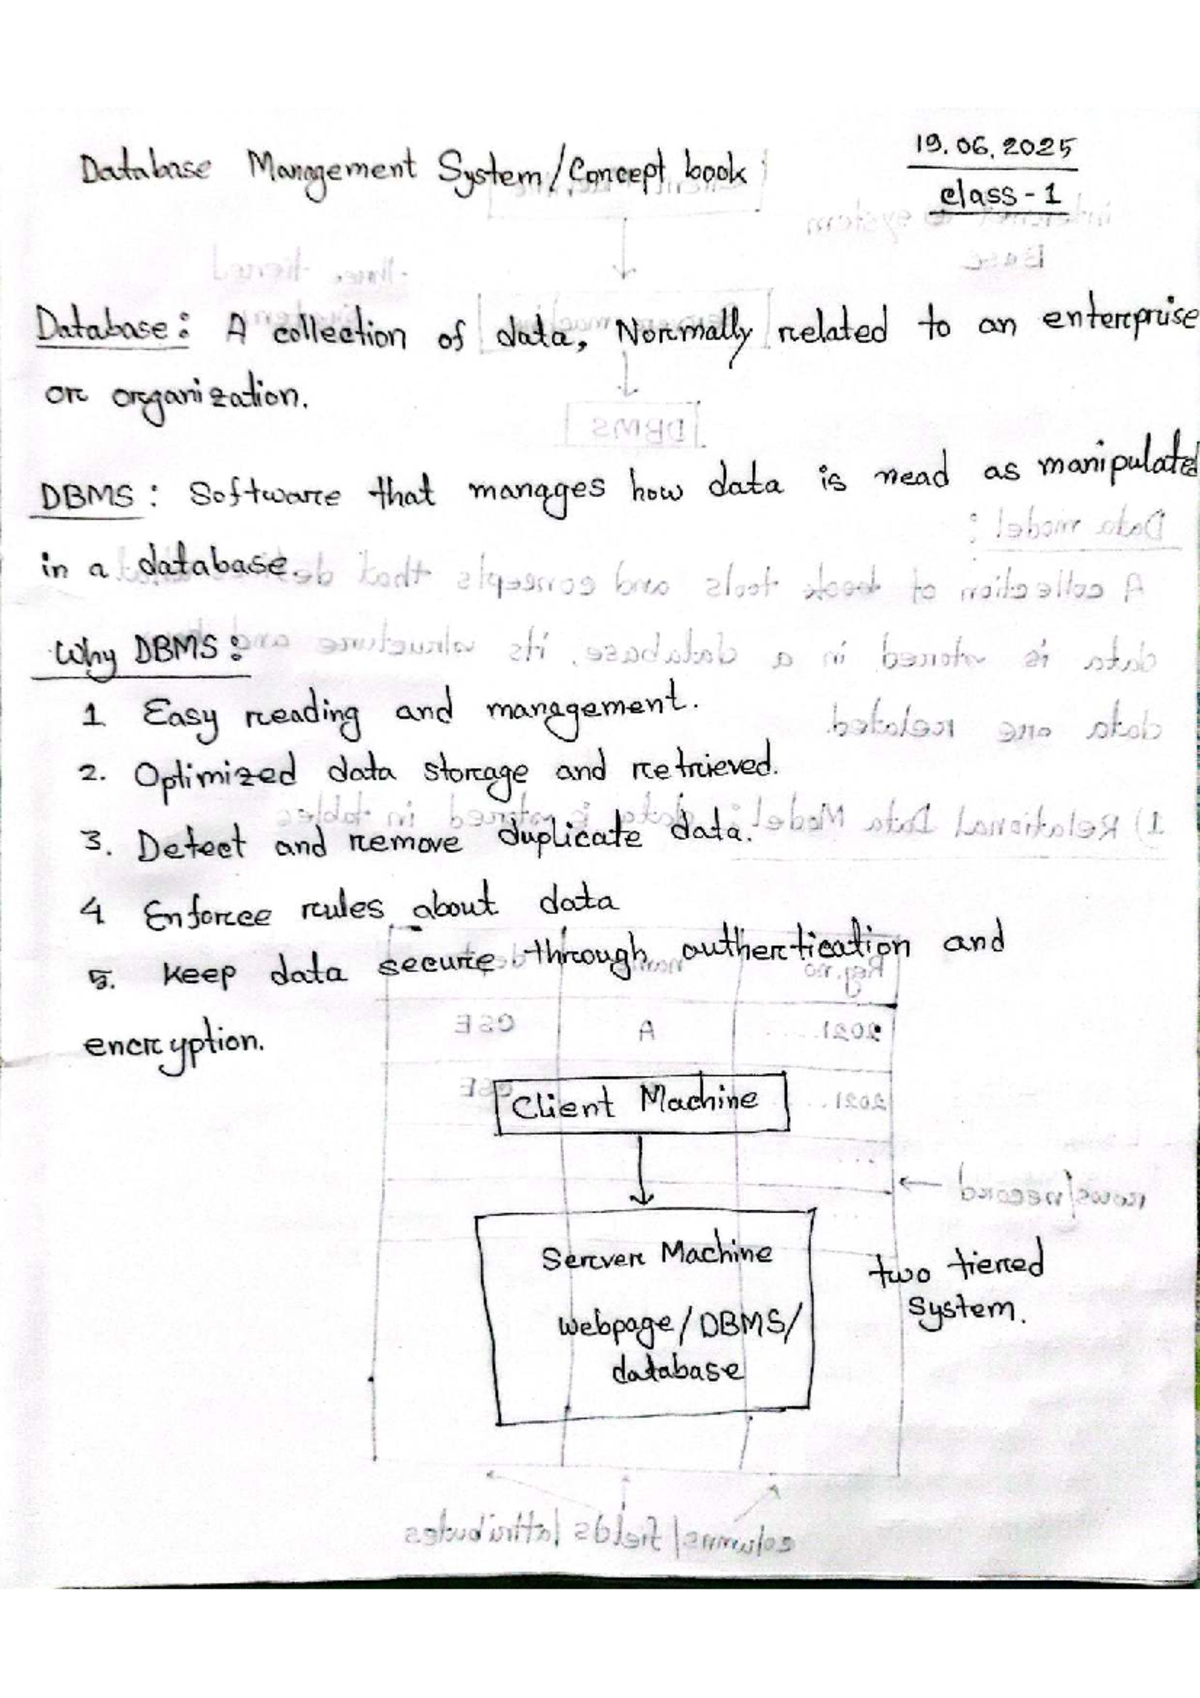 Database Management System/Concept book
19.06.2025
class-1
Database: A collection of data, Normally related to an enterprise
or organization.
DBMS: Software that manages how data is read as manipulated
in a database.
Why DBMS:
1 Easy reading and management.
2. Optimized data storage and retrieved.
3. Detect and remove duplicate data.
4 Enforce rules about data
5. Keep data secure through authentication and
encryption.
Client Machine
Server Machine
webpage/DBMS/
database
two tiered
system.